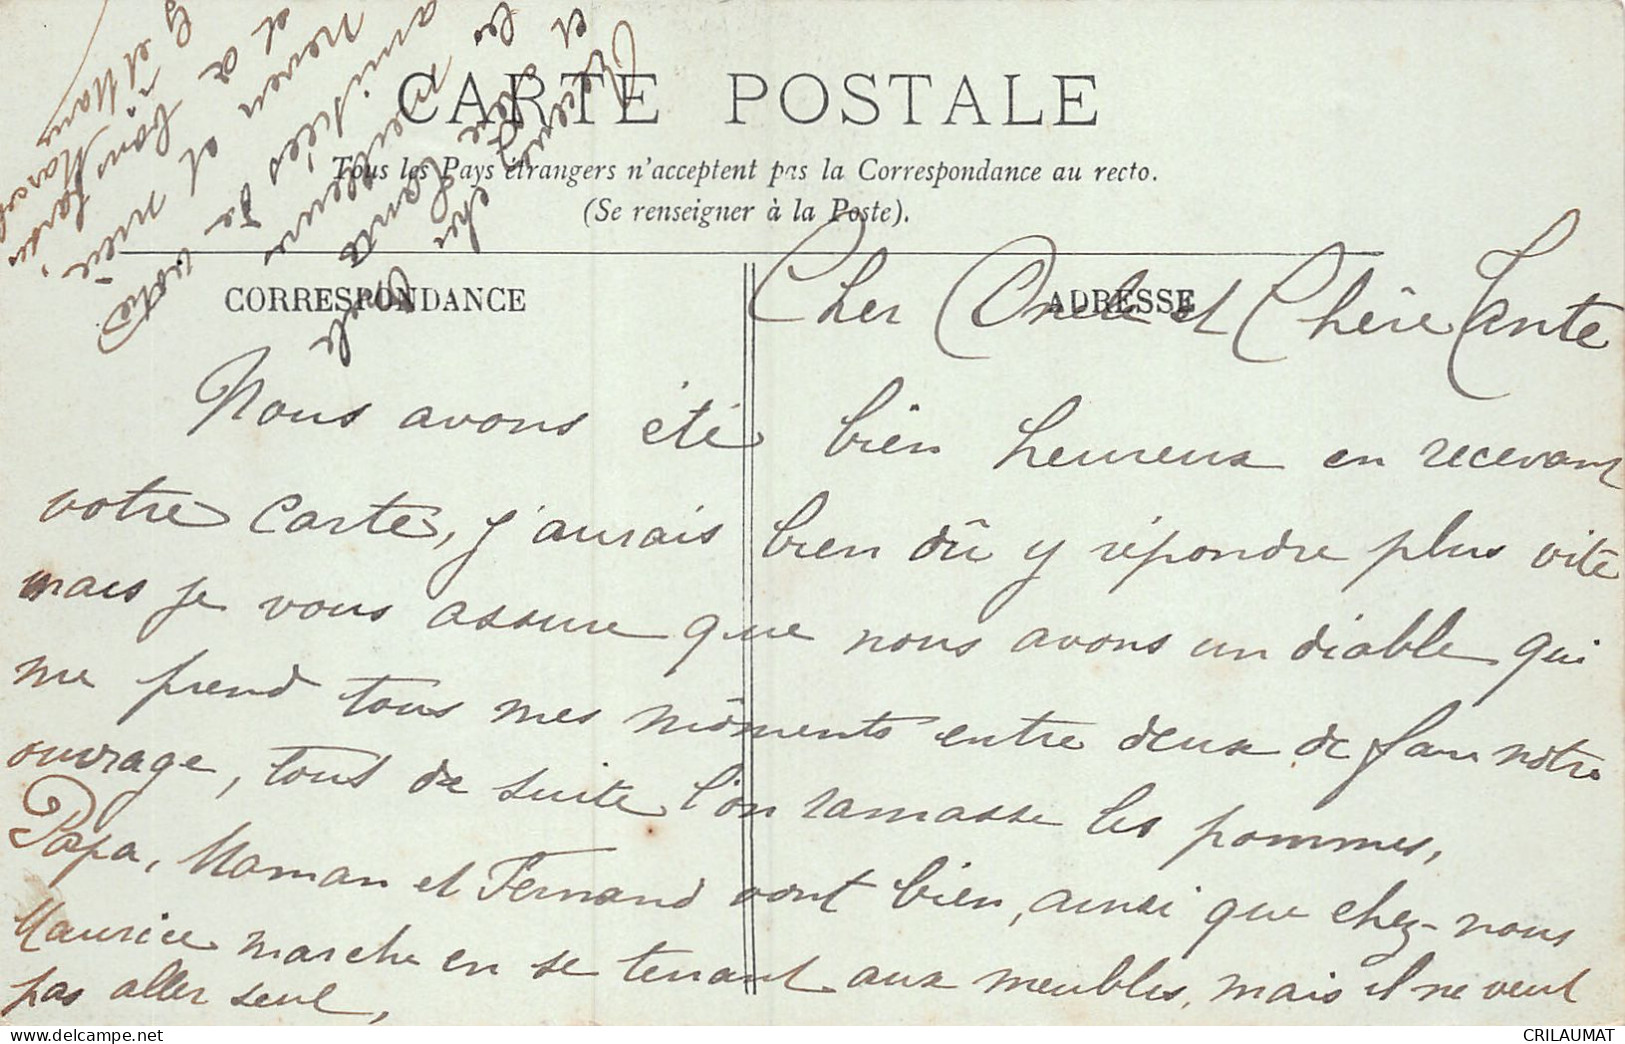 CARTE POSTALE
Tous les Pays étrangers n'acceptent pas la Correspondance au recto.
(Se renseigner à la Poste).
CORRESPONDANCE
ADRESSE
Cher Oncle et Chère Tante
Nous avons été bien heureux en recevant
votre carte, j'aurais bien dû y répondre plus vite
mais je vous assure que nous avons un diable qui
me prend tous mes moments entre deux de fau notre
ouvrage, tous de suite l'on ramasse les pommes,
Papa, Maman et Fernand vont bien, ainsi que chez-nous
Maurice marche en se tenant aux meubles, mais il ne veut
pas aller seul,
cher
Tante
les
meilleures
amitiés
de
votre
neveu et nièce
et
CRILAUMAT